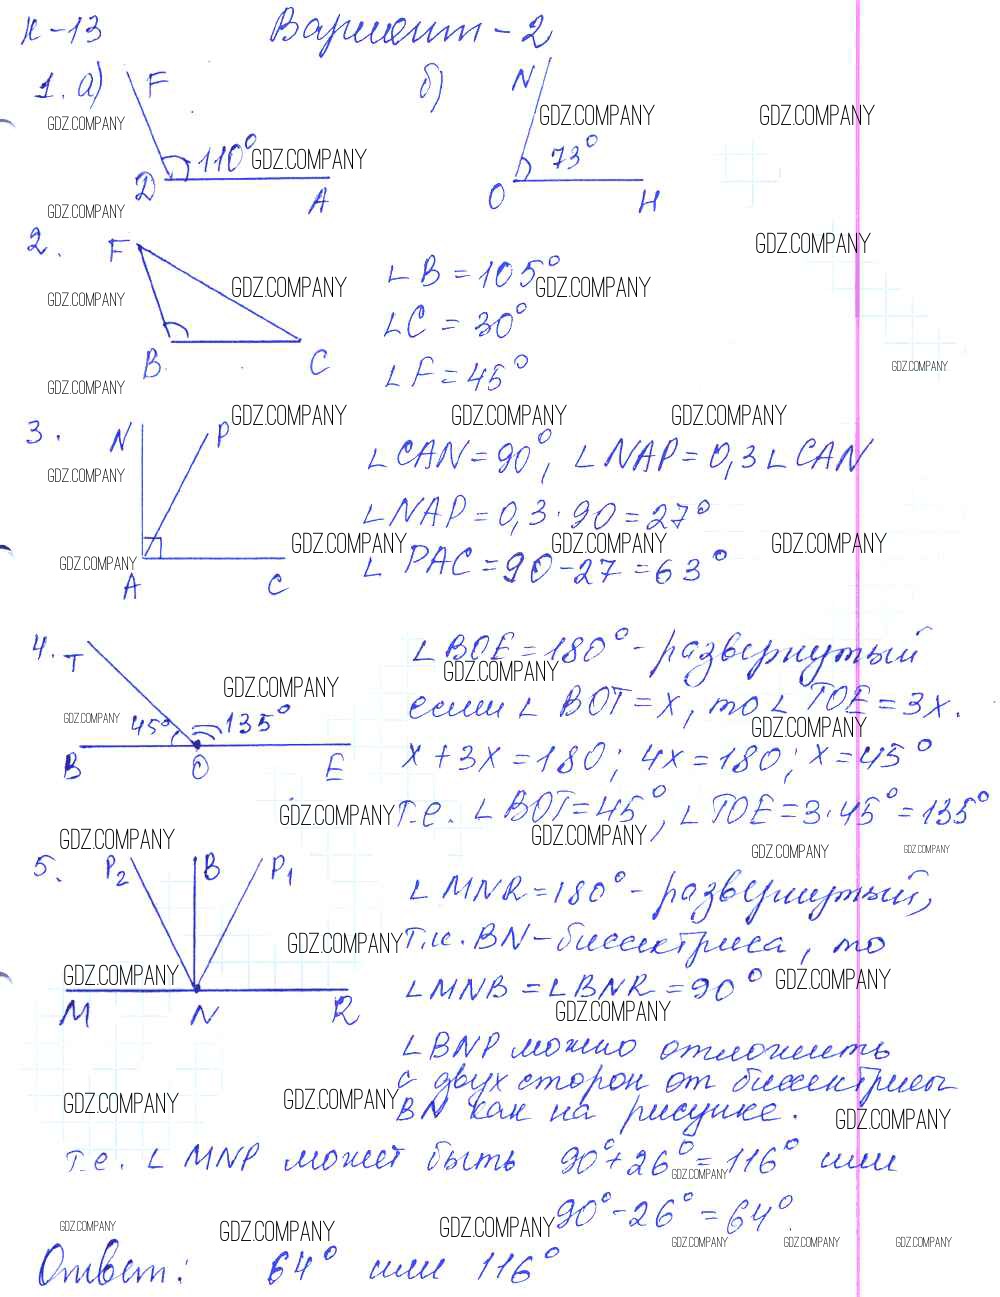 К-13 Вариант-2
1. а) F б) N
GDZ.COMPANY GDZ.COMPANY GDZ.COMPANY
110° GDZ.COMPANY 73°
D A O H
GDZ.COMPANY
2. F GDZ.COMPANY
GDZ.COMPANY ∠B = 105° GDZ.COMPANY
GDZ.COMPANY ∠C = 30°
B C ∠F = 45° GDZ.COMPANY
GDZ.COMPANY
GDZ.COMPANY GDZ.COMPANY GDZ.COMPANY
3. N P ∠CAN = 90°, ∠NAP = 0,3∠CAN
GDZ.COMPANY
∠NAP = 0,3·90 = 27°
GDZ.COMPANY GDZ.COMPANY GDZ.COMPANY
GDZ.COMPANY ∠PAC = 90-27 = 63°
A C
4. T ∠BOE = 180° - развернутый
GDZ.COMPANY GDZ.COMPANY
если ∠BOT = x, то ∠TOE = 3x.
GDZ.COMPANY 45° 135° GDZ.COMPANY
B O E x + 3x = 180; 4x = 180; x = 45°
GDZ.COMPANY т.е. ∠BOT = 45°, ∠TOE = 3·45° = 135°
GDZ.COMPANY GDZ.COMPANY GDZ.COMPANY GDZ.COMPANY
5. P₂ B P₁ ∠MNR = 180° - развернутый,
GDZ.COMPANY т.к. BN - биссектриса, то
GDZ.COMPANY ∠MNB = ∠BNR = 90° GDZ.COMPANY
M N R GDZ.COMPANY
∠BNP можно отложить
с двух сторон от биссектрисы
GDZ.COMPANY GDZ.COMPANY BN как на рисунке. GDZ.COMPANY
т.е. ∠MNP может быть 90° + 26° = 116° или
GDZ.COMPANY
90° - 26° = 64°.
GDZ.COMPANY GDZ.COMPANY GDZ.COMPANY GDZ.COMPANY GDZ.COMPANY GDZ.COMPANY
Ответ: 64° или 116°